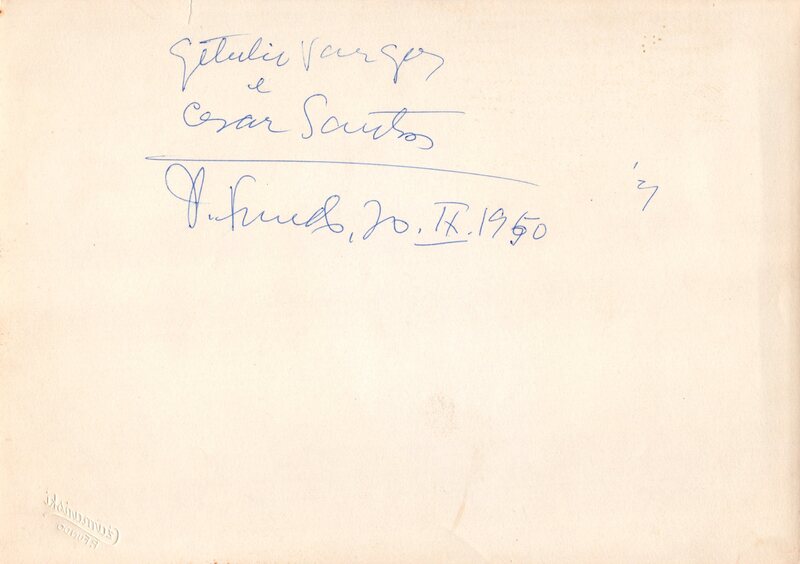 Getulio Vargas
e
Cesar Santos
P. Fundo, 20.IX.1950
Czamanski
P. FUNDO